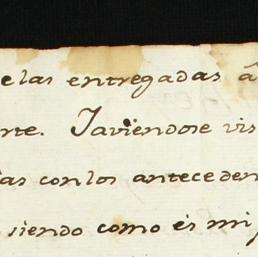 e las entregadas á
rte. Iaviendose vis
ias con los anteceden
siendo como és mi